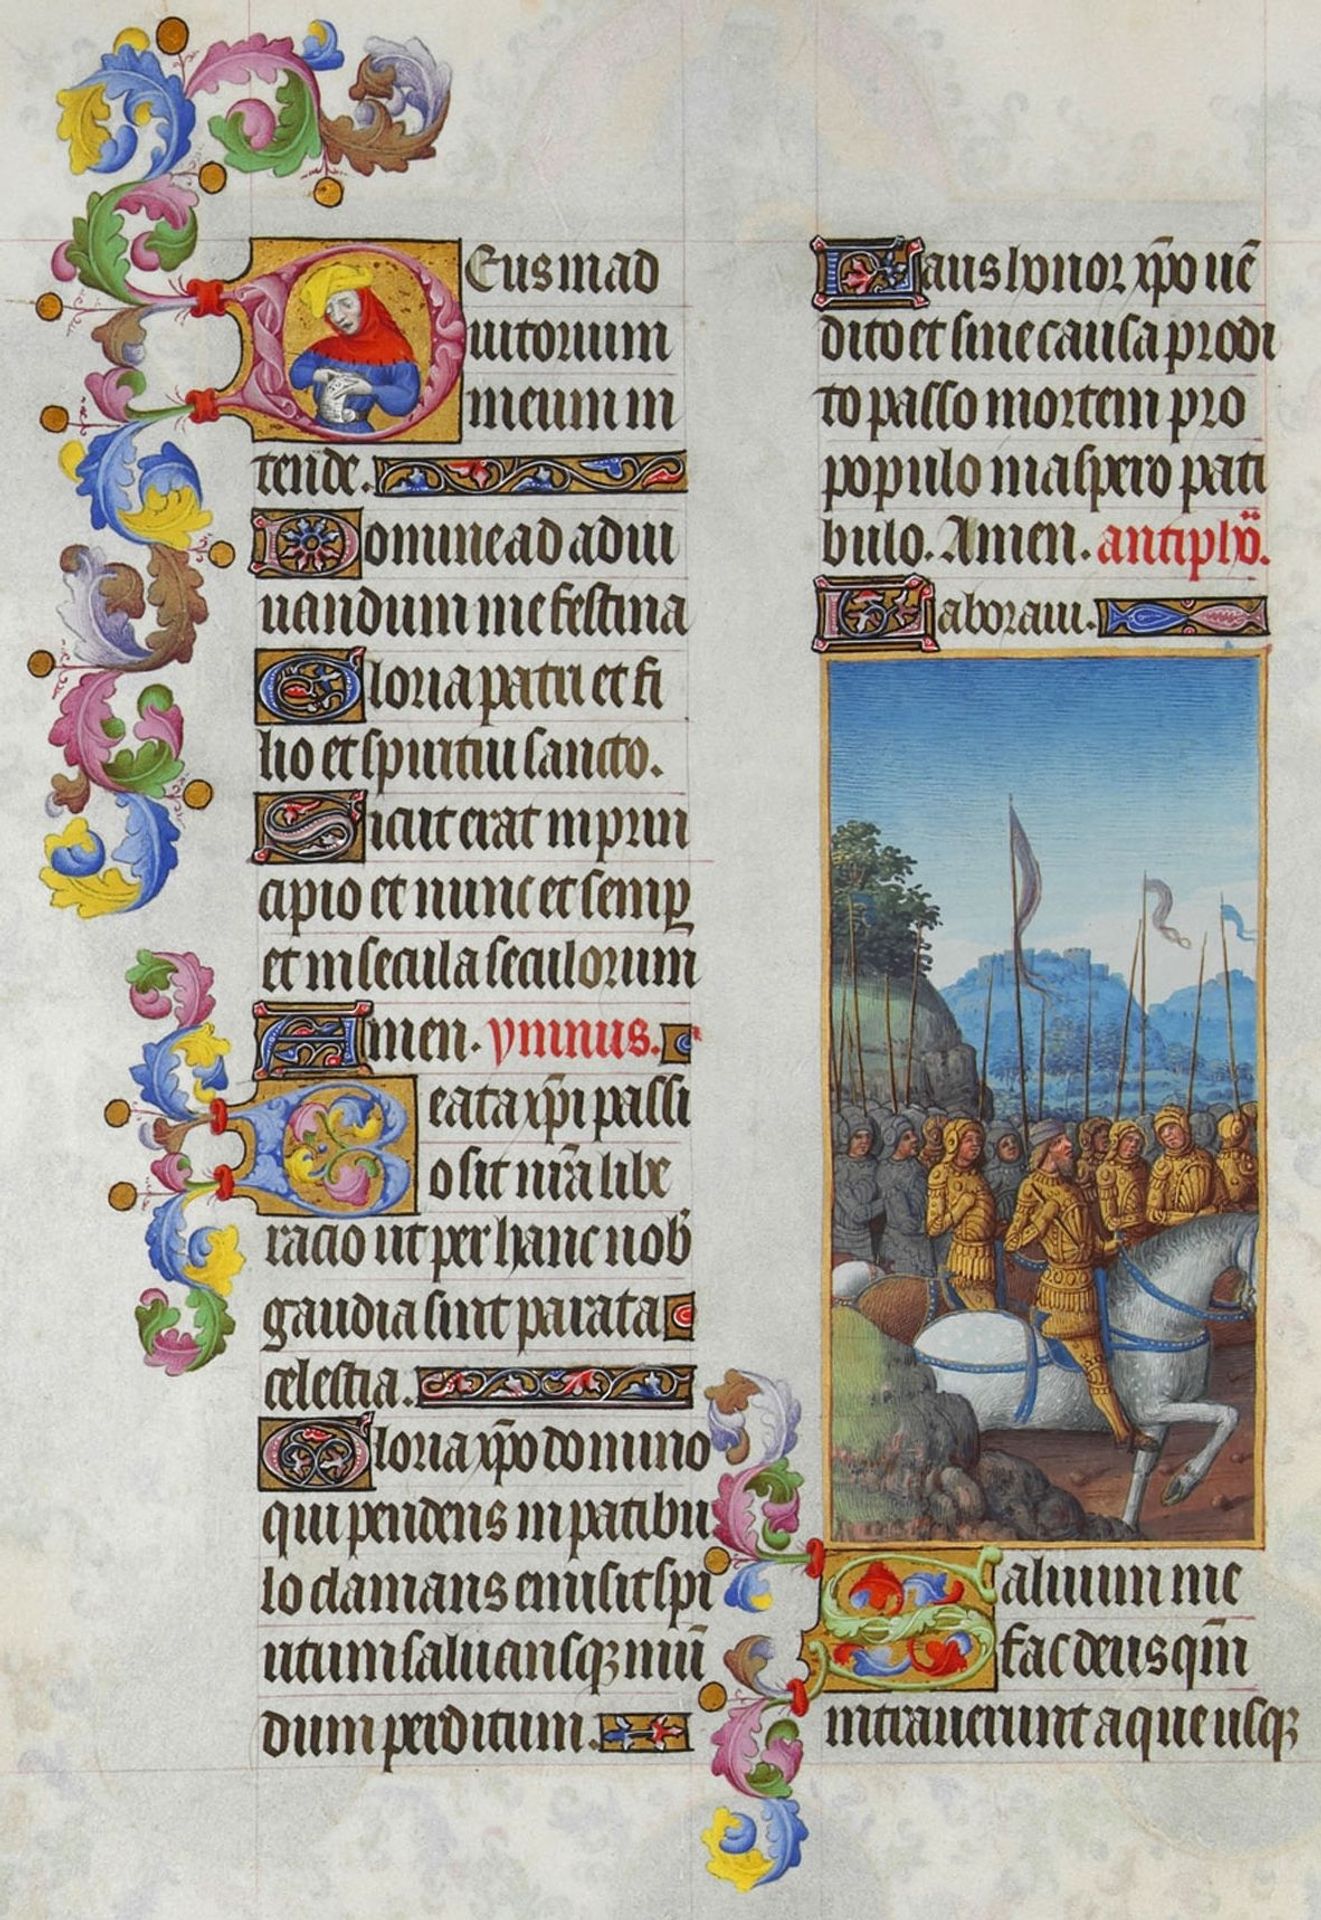 Deus in ad
iutorium
meum in
tende.
Domine ad adiu
uandum me festina
Gloria patri et fi
lio et spiritui sancto.
Sicut erat in prin
cipio et nunc et semꝑ
et in secula seculorum
Amen. ymnus.
Beata xp̄i passi
o sit nr̄a libe
racio ut per hanc nob̄
gaudia sint parata
celestia.
Gloria xp̄o domino
qui pendens in patibu
lo clamans emisit spi
ritum saluansqꝫ mū
dum perditum.
Laus honor xp̄o uē
dito et sine causa prodi
to passo mortem pro
populo in aspero pati
bulo. Amen. antiph̄o.
Laboraui.
Saluum me
fac deus qm̄
intrauerunt aque usqꝫ